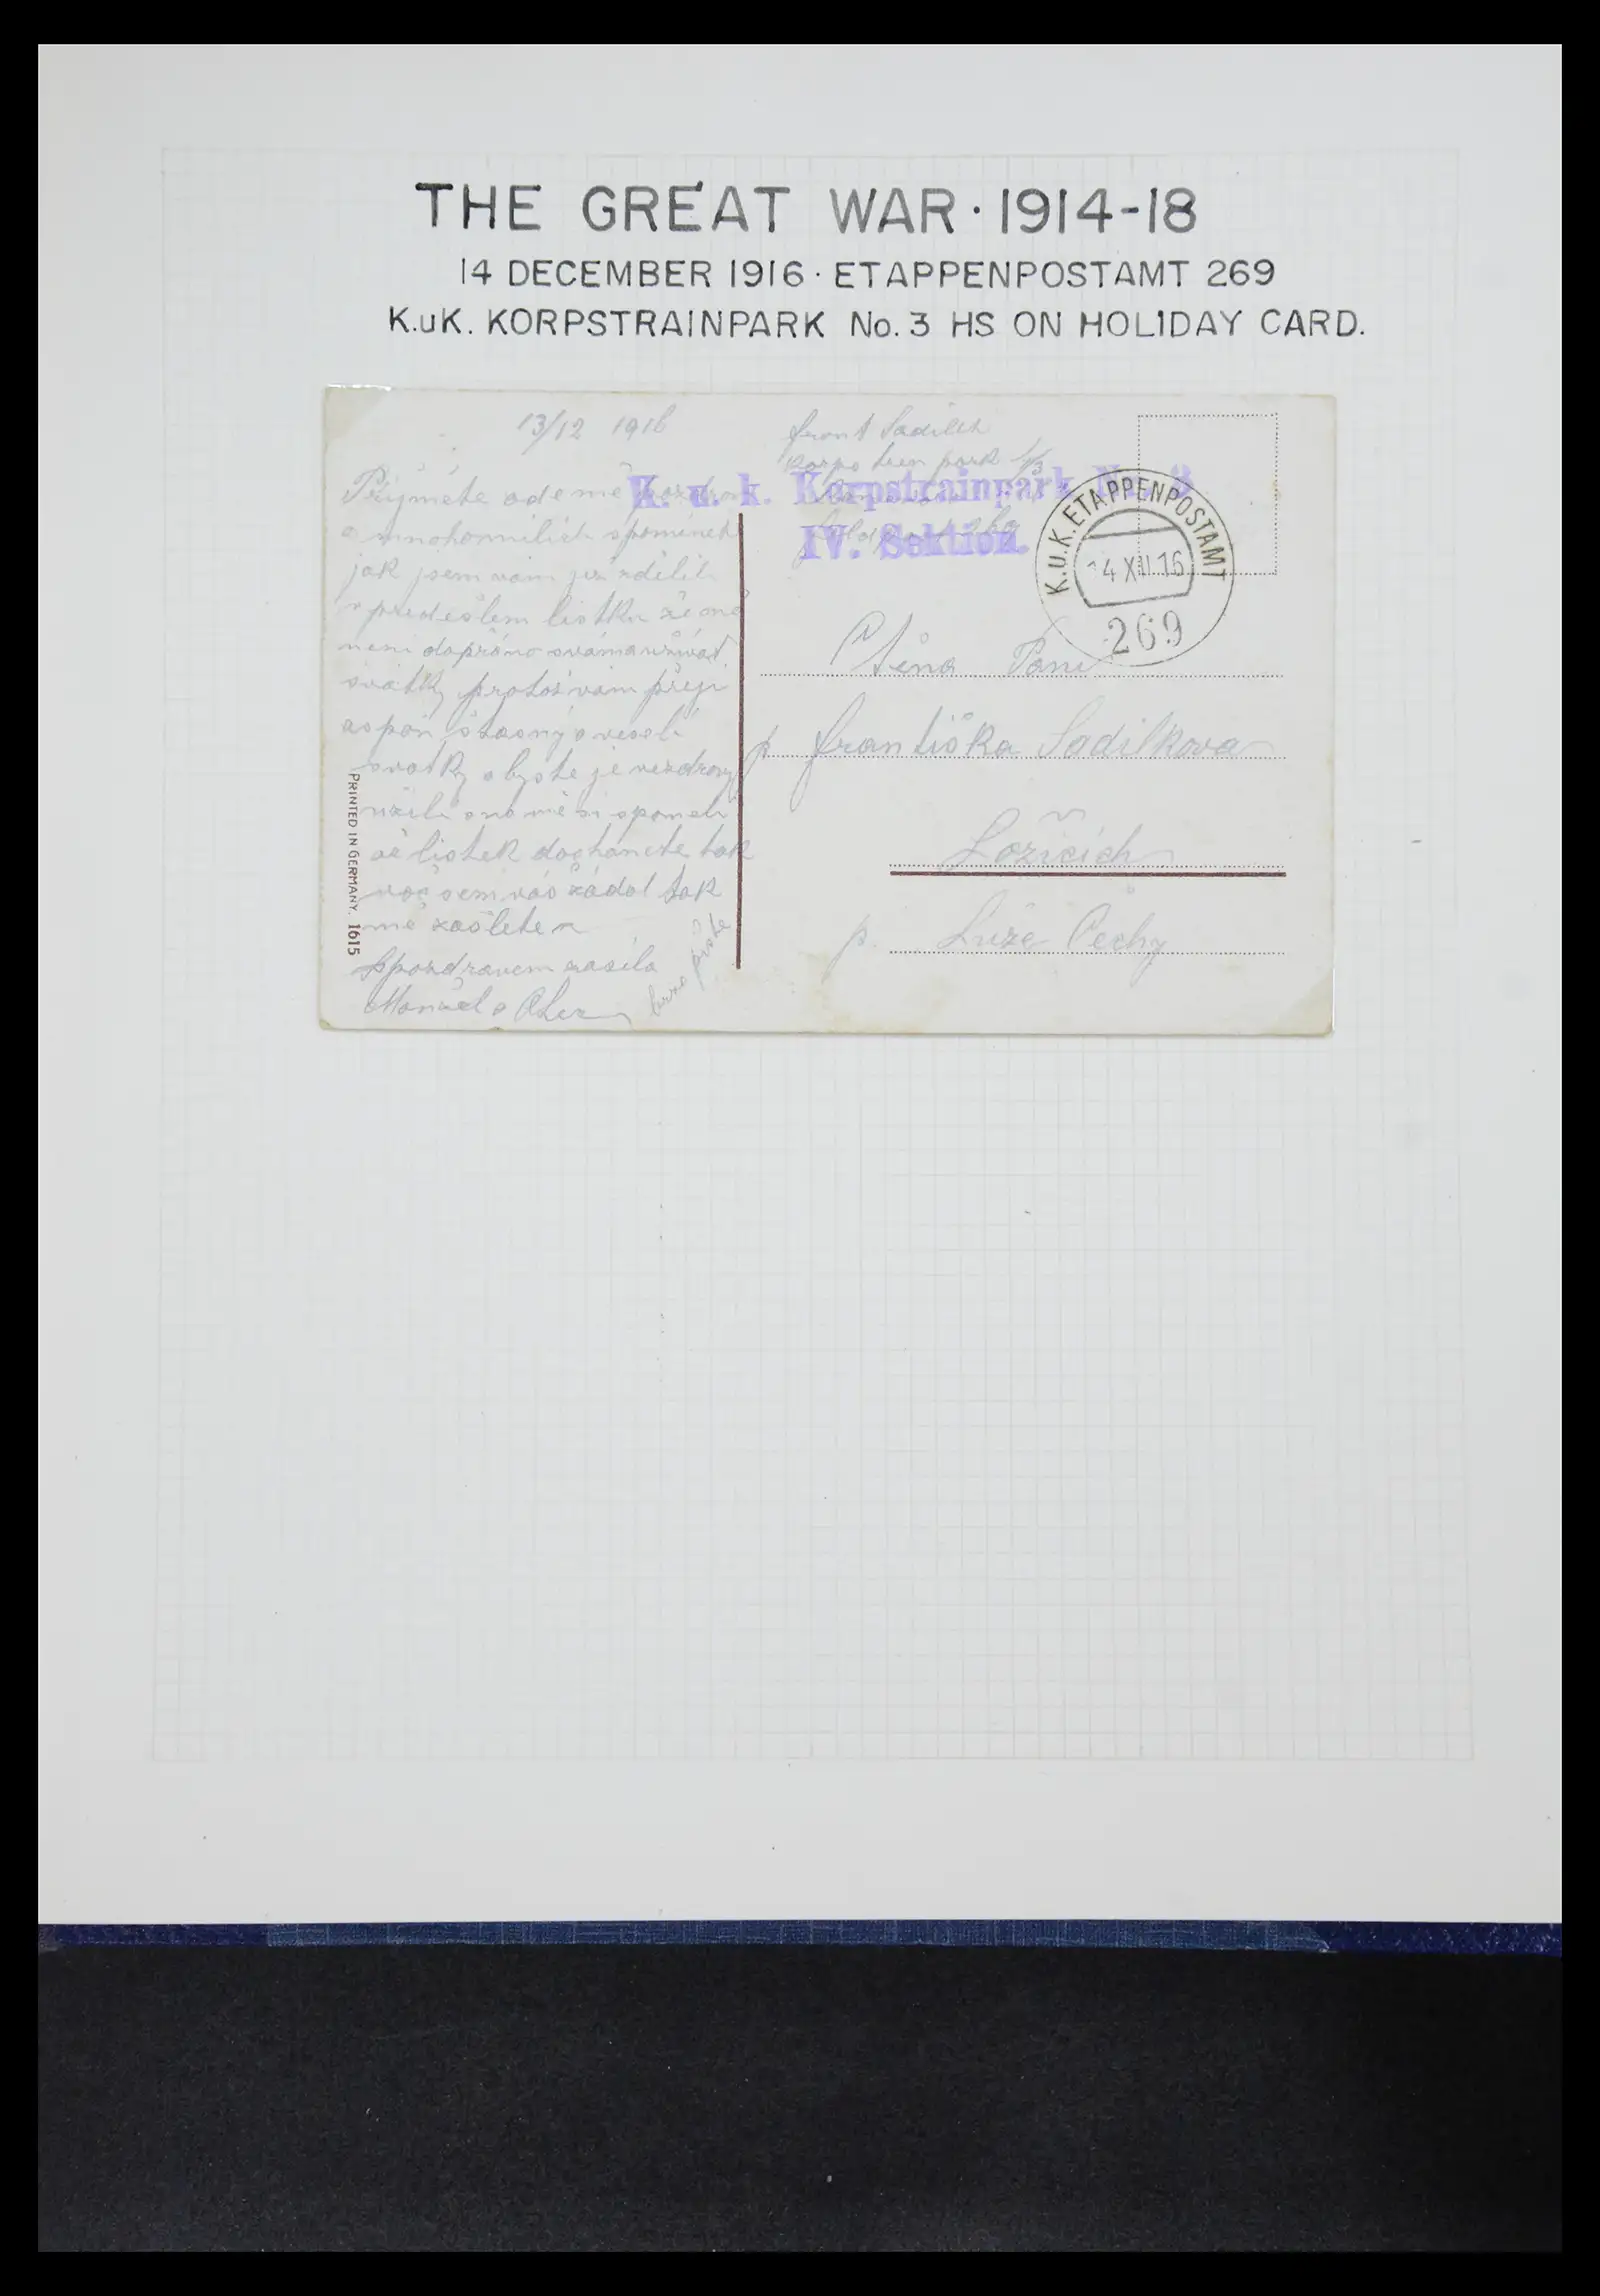 THE GREAT WAR · 1914-18
14 DECEMBER 1916 · ETAPPENPOSTAMT 269
K.uK. KORPSTRAINPARK No. 3 HS ON HOLIDAY CARD.
13/12 1916
Přijměte odemě
jak jsem vám již zdělil
v předešlem listku že mě
neni dopřáno
svátky protož vám přeji
aspoň štasny a veselé
svatky abyste je ve zdravy
užili a na mě si
že listek dostanete tak
vás žádal tak
mě zašlete
Spozdravem zasila
Manžel a Otec
brzo pište
PRINTED IN GERMANY. 1615
Frant Sadilek
K. u. k. Korpstrainpark Nr. 3
IV. Sektion.
K.u.K. ETAPPENPOSTAMT
14 XII 16
269
Ctěna Pani
p Františka Sadilkova
Lozičich
p. Luže Čechy